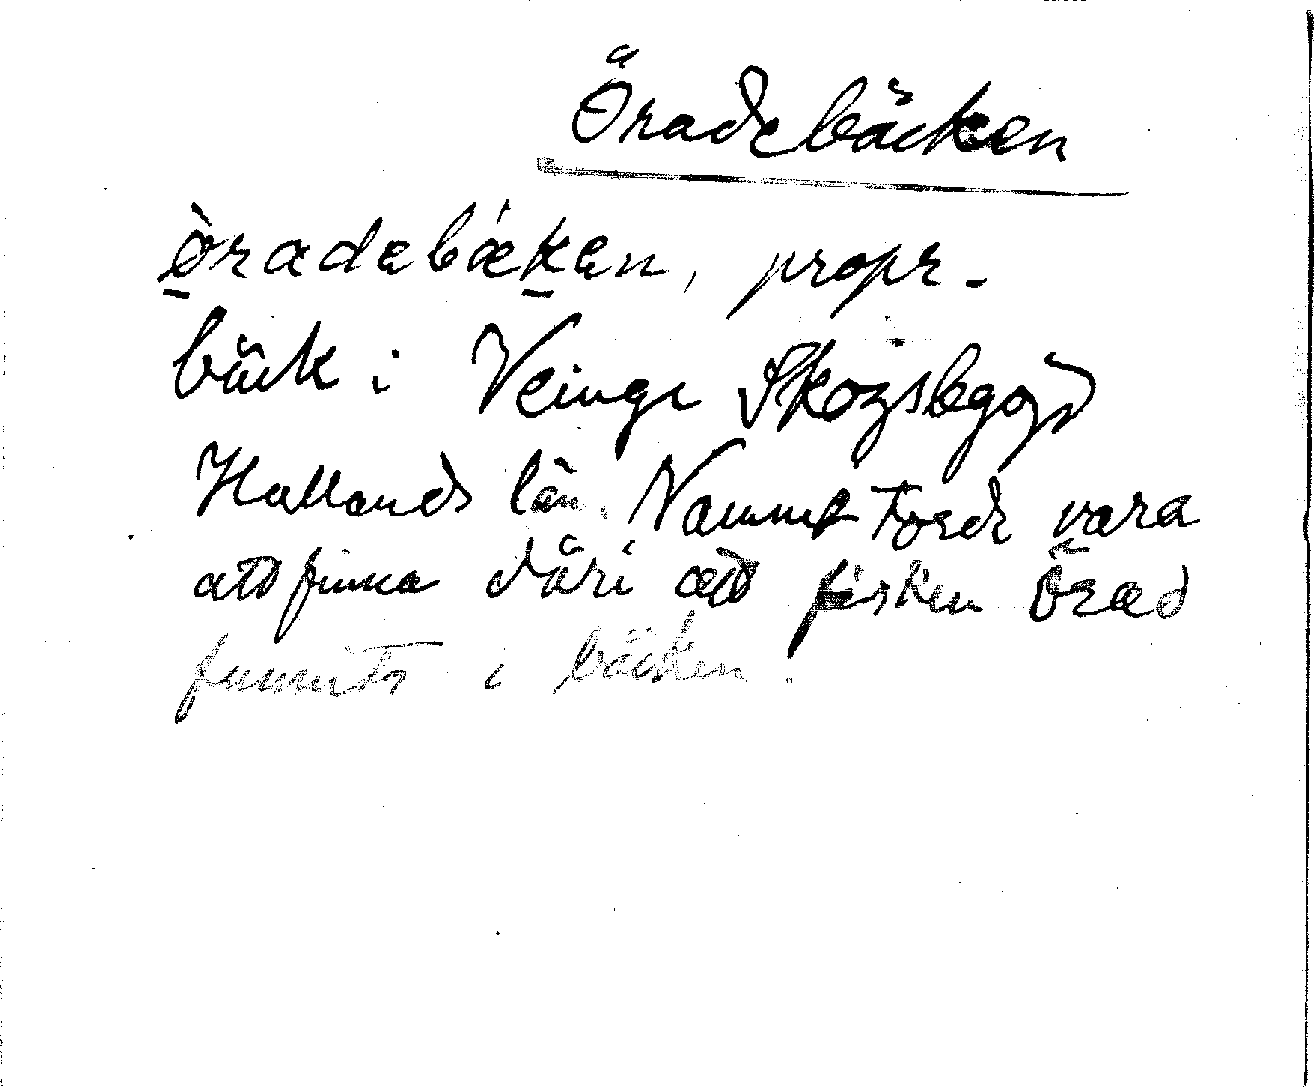 Öradebäcken
òradebǽken, propr.
bäck i Veinge Skogsbygd
Hallands län. Namnet torde vara
att finna däri att fisken örad
funnits i bäcken.